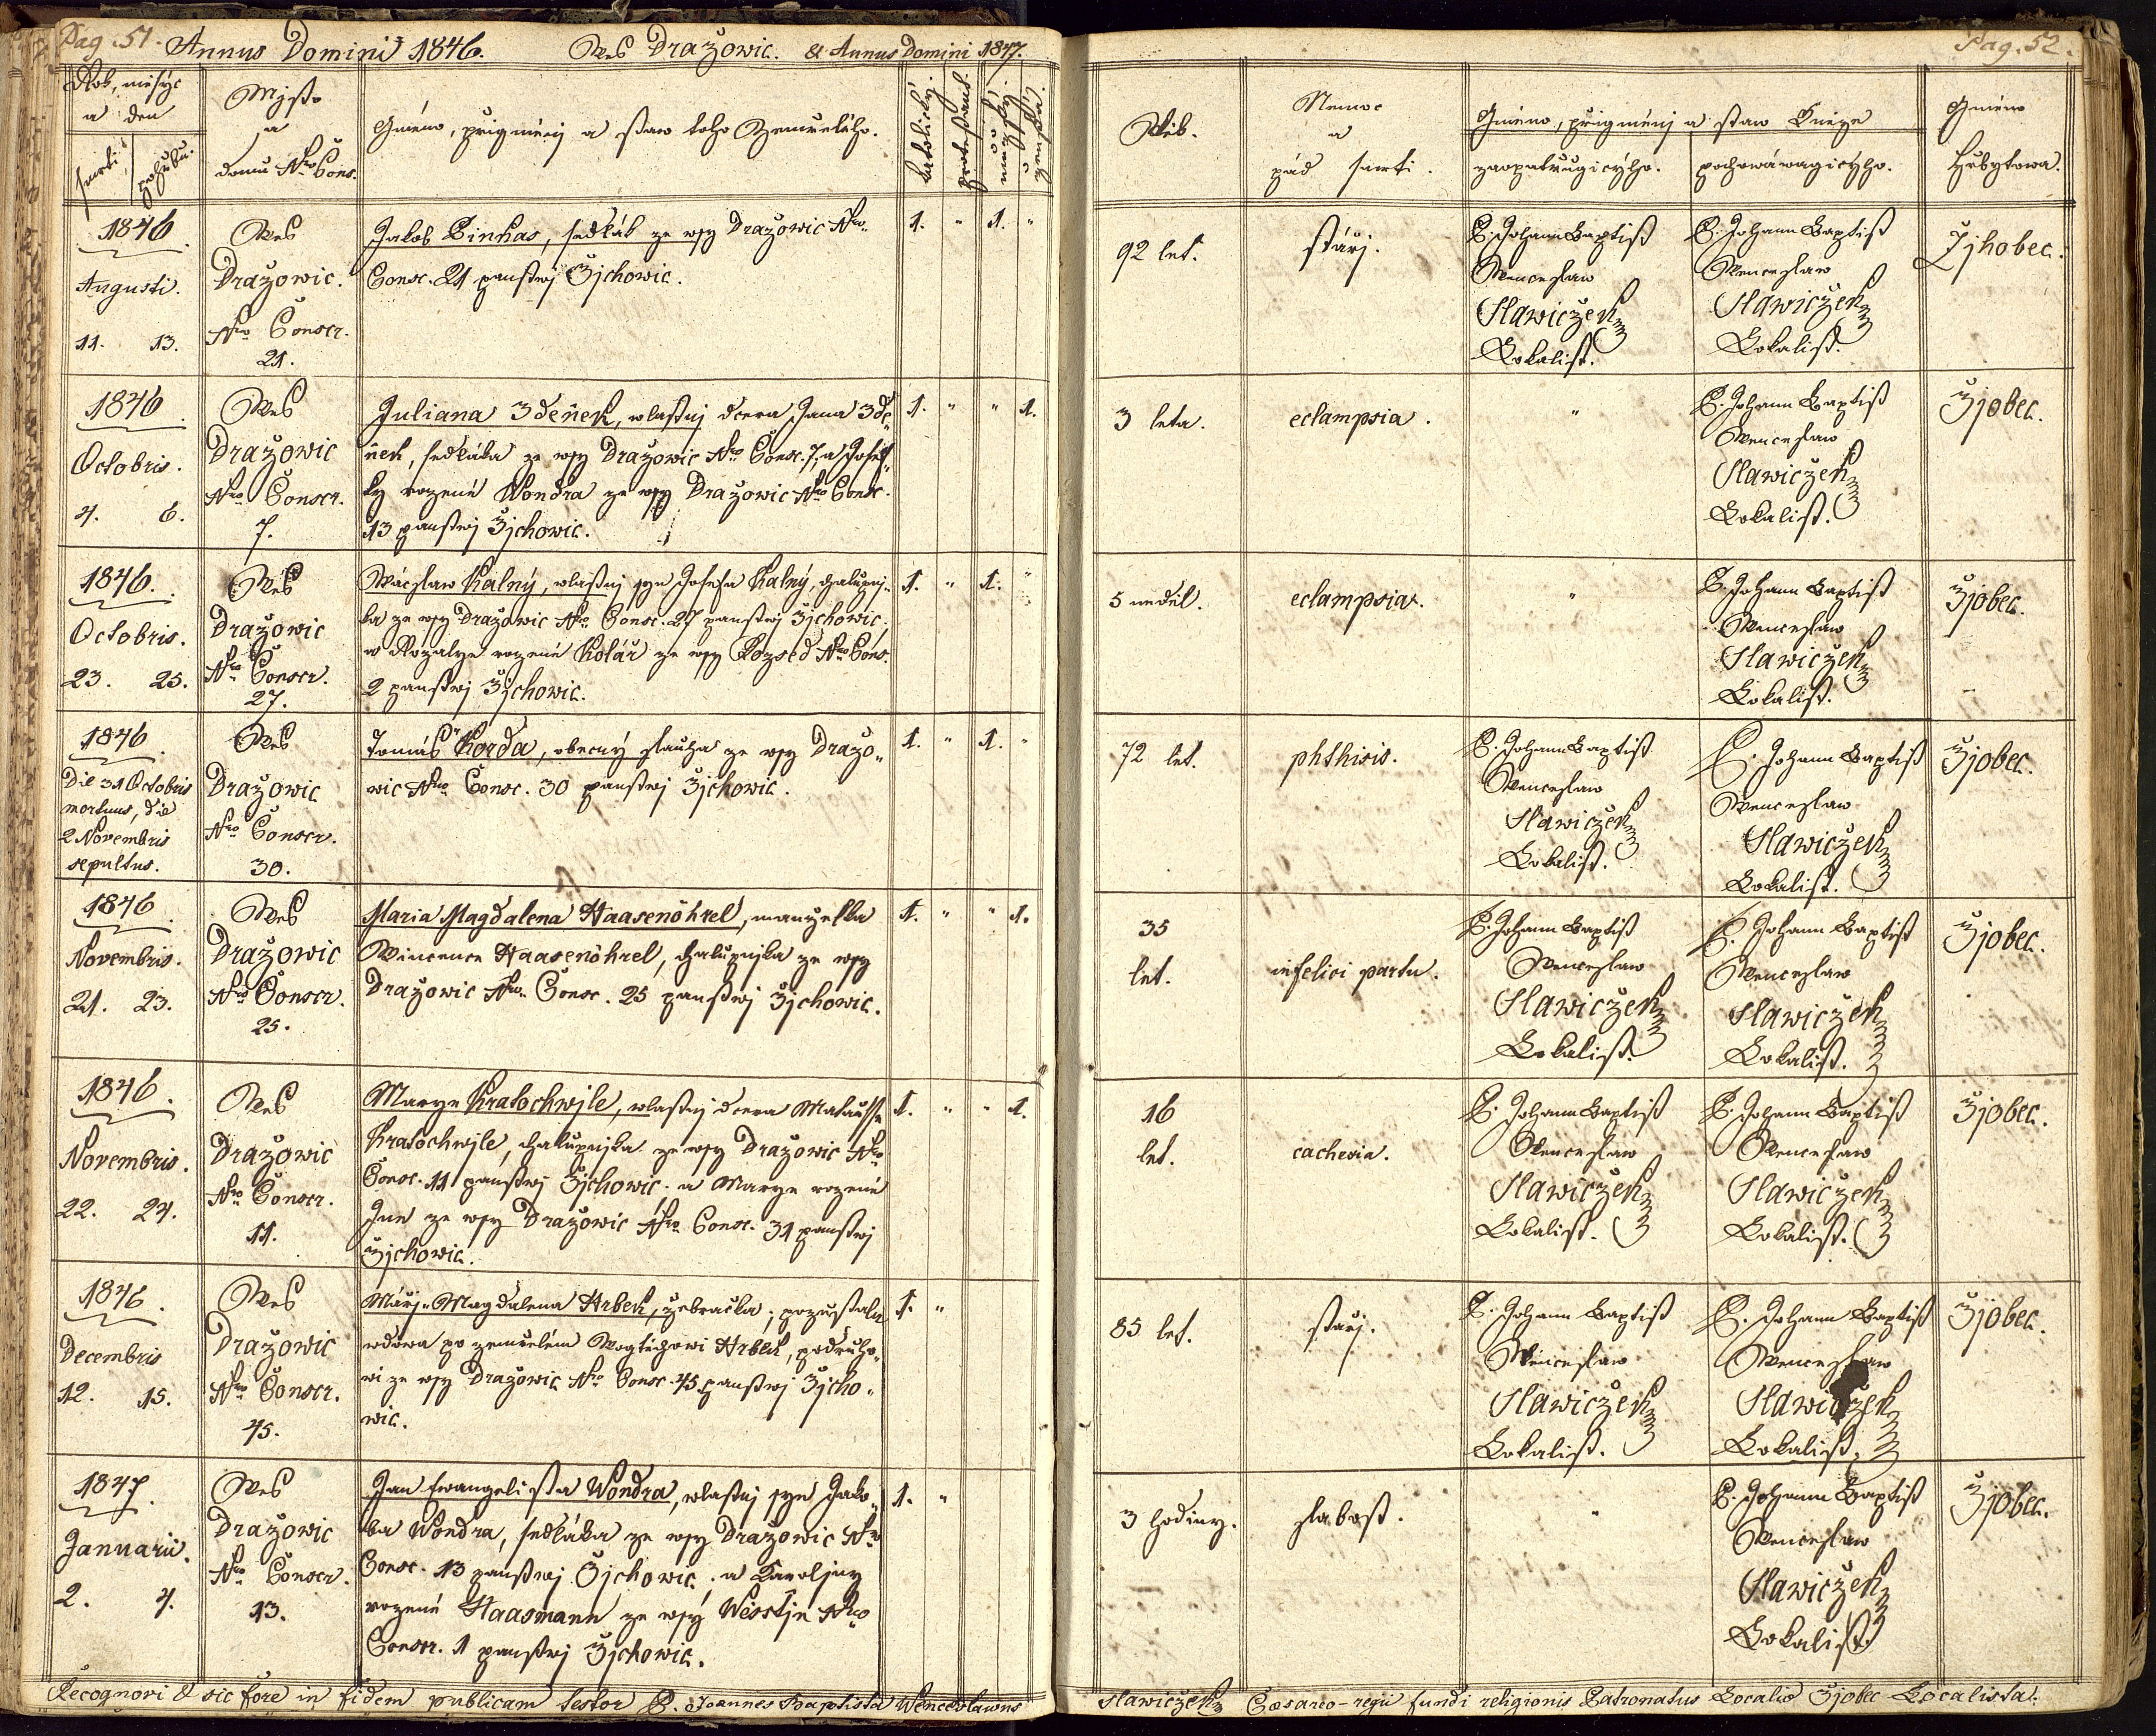 Pag. 51.
Annus Domini 1846. Wes Dražowic. & Annus Domini 1847.
Rok, měsýc
a den
smrti
pohřbu.
Mjsto
a
domu Nro Cons.
Gméno, přigménj a staw toho Zemřelého.
katolický.
protestant.
mužský.
ženská.
1846.
Augusti.
11. 13.
Wes
Dražowic.
Nro Conscr.
21.
Jakob Pinkas, sedlák ze wsy Dražowic Nro
Consc. 21 panstwj Žjchowic.
1. " 1. "
1846.
Octobris.
4. 6.
Wes
Dražowic
Nro Conscr.
7.
Juliana Zdeňek, wlastnj dcera Jana Zde„
ňek, sedláka ze wsy Dražowic Nro Consc. 7, a Josef„
ky rozené Wondra ze wsy Dražowic Nro Consc.
13 panstwj Žjchowic.
1. " " 1.
1846.
Octobris.
23. 25.
Wes
Dražowic
Nro Conscr.
27.
Wácslaw Kalný, wlastnj syn Josefa Kalný, chalupnj„
ka ze wsy Dražowic Nro Consc. 27 panstwj Žjchowic,
a Rozalye rozené Kolář ze wsy Rozsed Nro Cons.
2 panstwj Žjchowic.
1. " 1. "
1846.
Die 31 Octobris
mortuus, die
2 Novembris
sepultus.
Wes
Dražowic
Nro Conscr.
30.
Tomáš Korda, obecný slauha ze wsy Dražo„
wic Nro Consc. 30 panstwj Žjchowic.
1. " 1. "
1846.
Novembris.
21. 23.
Wes
Dražowic
Nro Conscr.
25.
Maria Magdalena Haasenöhrel, manželka
Wincence Haasenöhrel, chalupnjka ze wsy
Dražowic Nro Consc. 25 panstwj Žjchowic.
1. " " 1.
1846.
Novembris.
22. 24.
Wes
Dražowic
Nro Conscr.
11.
Marye Kratochwjle, wlastnj dcera Matausse
Kratochwjle, chalupnjka ze wsy Dražowic Nro
Consc. 11 panstwj Žjchowic. a Marye rozené
Jun ze wsy Dražowic Nro Consc. 31 panstwj
Žjchowic.
1. " " 1.
1846.
Decembris
12. 15.
Wes
Dražowic
Nro Conscr.
45.
Márj-Magdalena Hrbek, žebračka, pozustalá
wdowa po zemřelém Wogtěchowi Hrbek, podruho„
wi ze wsy Dražowic Nro Consc. 45 panstwj Žjcho„
wic.
1. "
1847.
Januarii.
2. 4.
Wes
Dražowic
Nro Conscr.
13.
Jan Ewangelista Wondra, wlastnj syn Jako„
ba Wondra, sedláka ze wsy Dražowic Nro
Consc. 13 panstwj Žjchowic, a Karoljny
rozené Haasmann ze wsý Wěsstjn Nro
Conscr. 1 panstwj Žjchowic.
1. "
Recognovi & sic fore in fidem publicam testor P. Joannes Baptista Wenceslawus
Pag. 52.
Wěk.
Nemoc
a
pád smrti.
Gméno, přigménj a staw Kněze
zaopatřugicýho.
pochowáwagicýho.
Gméno
Hřbytowa.
92 let.
stářj.
P. Johann Baptist
Wenceslaw
Slawiczek
Lokalist.
P. Johann Baptist
Wenceslaw
Slawiczek
Lokalist.
Žjhobec.
3 leta.
eclampsia.
"
P. Johann Baptist
Wenceslaw
Slawiczek
Lokalist.
Žjobec.
5 neděl.
eclampsia.
"
P. Johann Baptist
Wenceslaw
Slawiczek
Lokalist.
Žjobec.
72 let.
phthisis.
P. Johann Baptist
Wenceslaw
Slawiczek
Lokalist.
P. Johann Baptist
Wenceslaw
Slawiczek
Lokalist.
Žjobec.
35
let.
infelici partu.
P. Johann Baptist
Wenceslaw
Slawiczek
Lokalist.
P. Johann Baptist
Wenceslaw
Slawiczek
Lokalist.
Žjobec.
16
let.
cachexia.
P. Johann Baptist
Wenceslaw
Slawiczek
Lokalist.
P. Johann Baptist
Wenceslaw
Slawiczek
Lokalist.
Žjobec.
85 let.
stářj.
P. Johann Baptist
Wenceslaw
Slawiczek
Lokalist.
P. Johann Baptist
Wenceslaw
Slawiczek
Lokalist.
Žjobec.
3 hodiny.
slabost.
"
P. Johann Baptist
Wenceslaw
Slawiczek
Lokalist.
Žjobec.
Slawiczek Caesareo-regii fundi religionis Patronatus Localis Žjobec Localista.